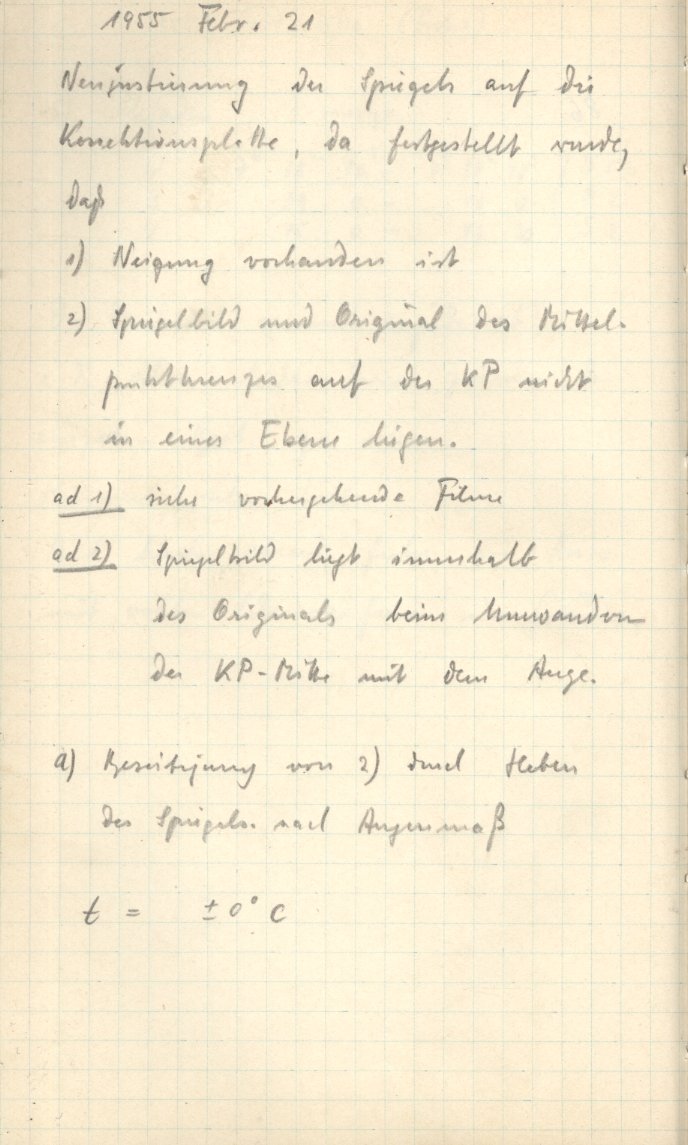 1955 Febr. 21
Neujustierung des Spiegels auf die
Korrektionsplatte, da festgestellt wurde,
daß
1) Neigung vorhanden ist
2) Spiegelbild und Original des Mittel-
punktkreuzes auf der KP nicht
in einer Ebene liegen.
ad 1) siehe vorhergehende Filme
ad 2) Spiegelbild liegt innerhalb
des Originals beim Umwandern
der KP-Mitte mit dem Auge.
a) Beseitigung von 2) durch Heben
des Spiegels. nach Augenmaß
t = ±0° C